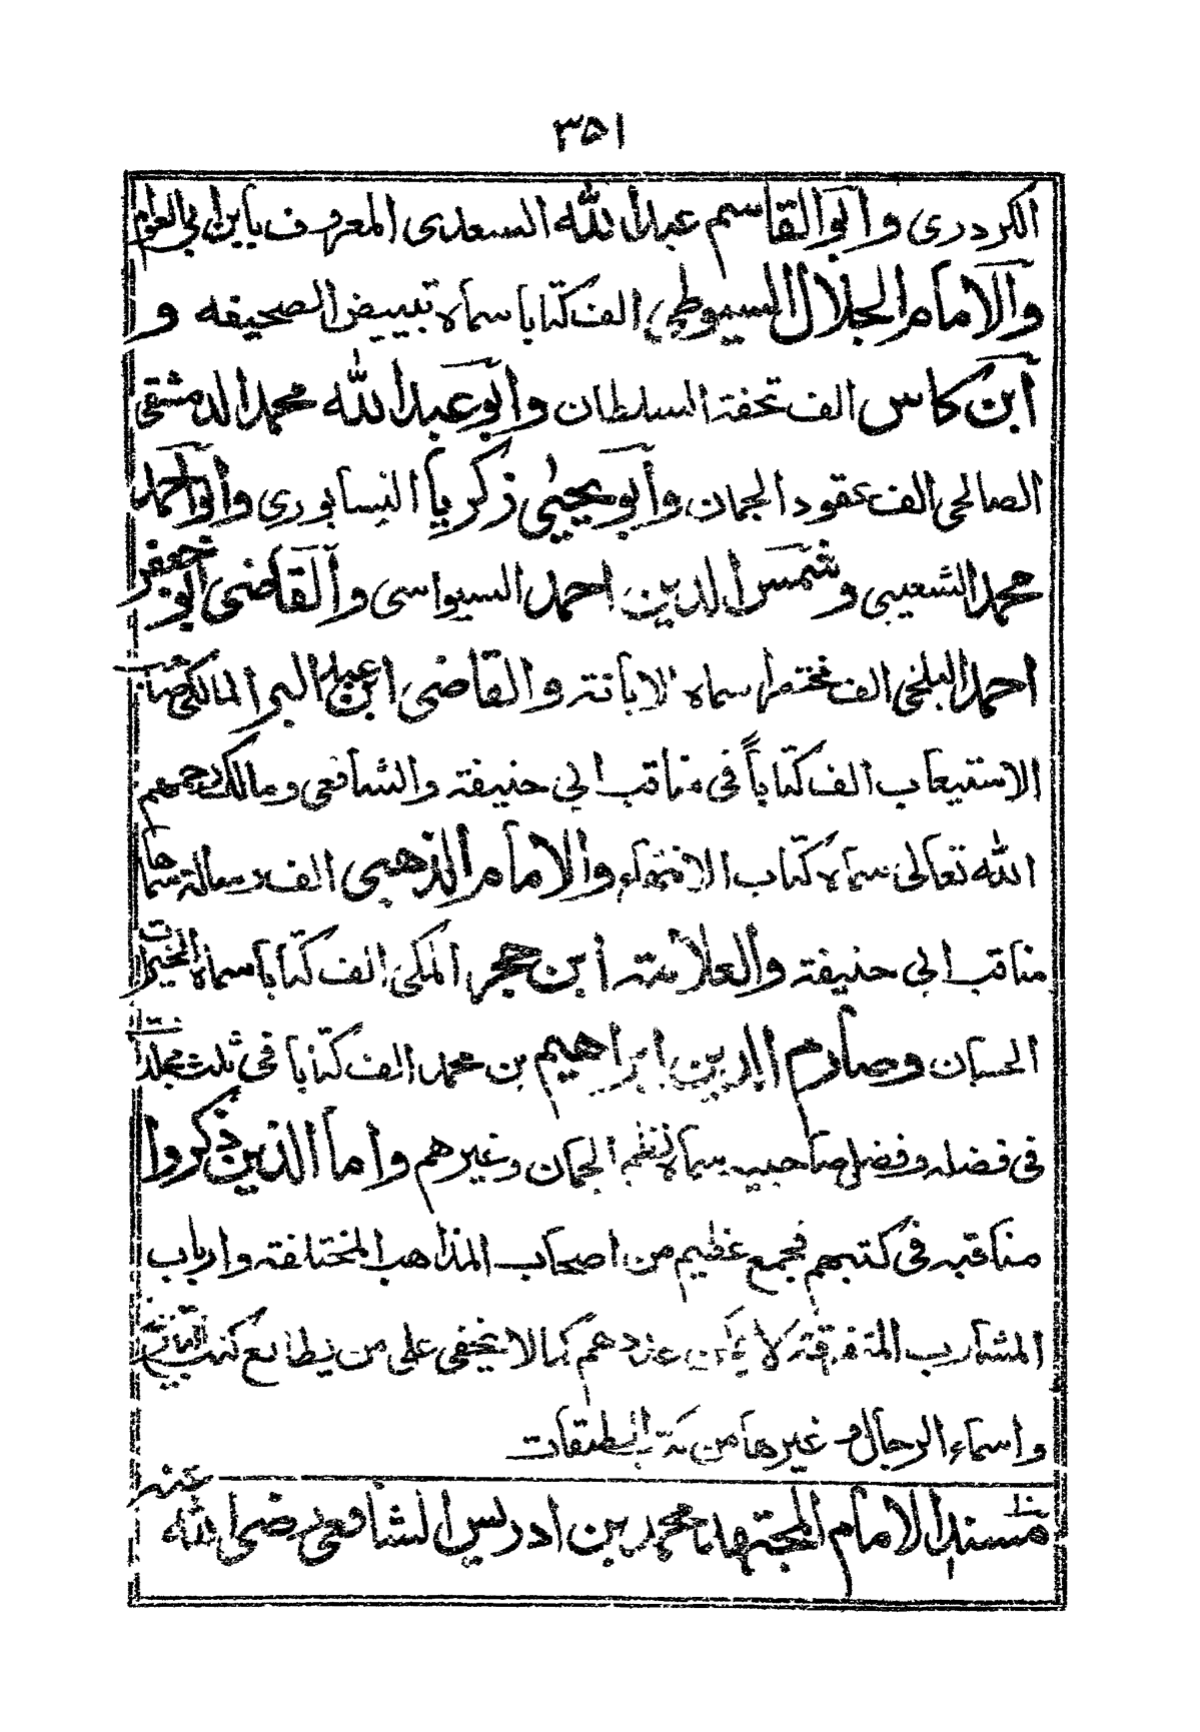 ٣٥١
الكردري وابو القاسم عبد الله السعدي المعروف بابن ابي العوام
والامام الجلال السيوطي الف كتابا سماه تبييض الصحيفه و
ابن كاس الف تحفة السلطان وابو عبد الله محمد الدمشقي
الصالحي الف عقود الجمان وابو يحيى زكريا النيسابوري وابو احمد
محمد الشعيبي وشمس الدين احمد السيواسي والقاضي ابو جعفر
احمد البلخي الف مختصرا سماه الابانته والقاضي ابن عبد البر المالكي صاحب
الاستيعاب الف كتاباً في مناقب ابي حنيفة والشافعي ومالك رحمهم
الله تعالى سماه كتاب الانتهاء والامام الذهبي الف رسالة سماها
مناقب ابي حنيفة والعلامته ابن حجر المكي الف كتابا سماه الخيرات
الحسان وصارم الدين ابراهيم بن محمد الف كتابا في ثلث مجلدات
في فضله وفضل صاحبيه سماه نظم الجمان وغيرهم واما الذين ذكروا
مناقبه في كتبهم فجمع عظيم من اصحاب المذاهب المختلفة وارباب
المشارب المتفرقة لا يمكن عندهم كما لا يخفى على من يطالع كتب
واسماء الرجال وغيرها من الطبقات
مسند الامام المجتهد محمد بن ادريس الشافعي رضي الله عنه